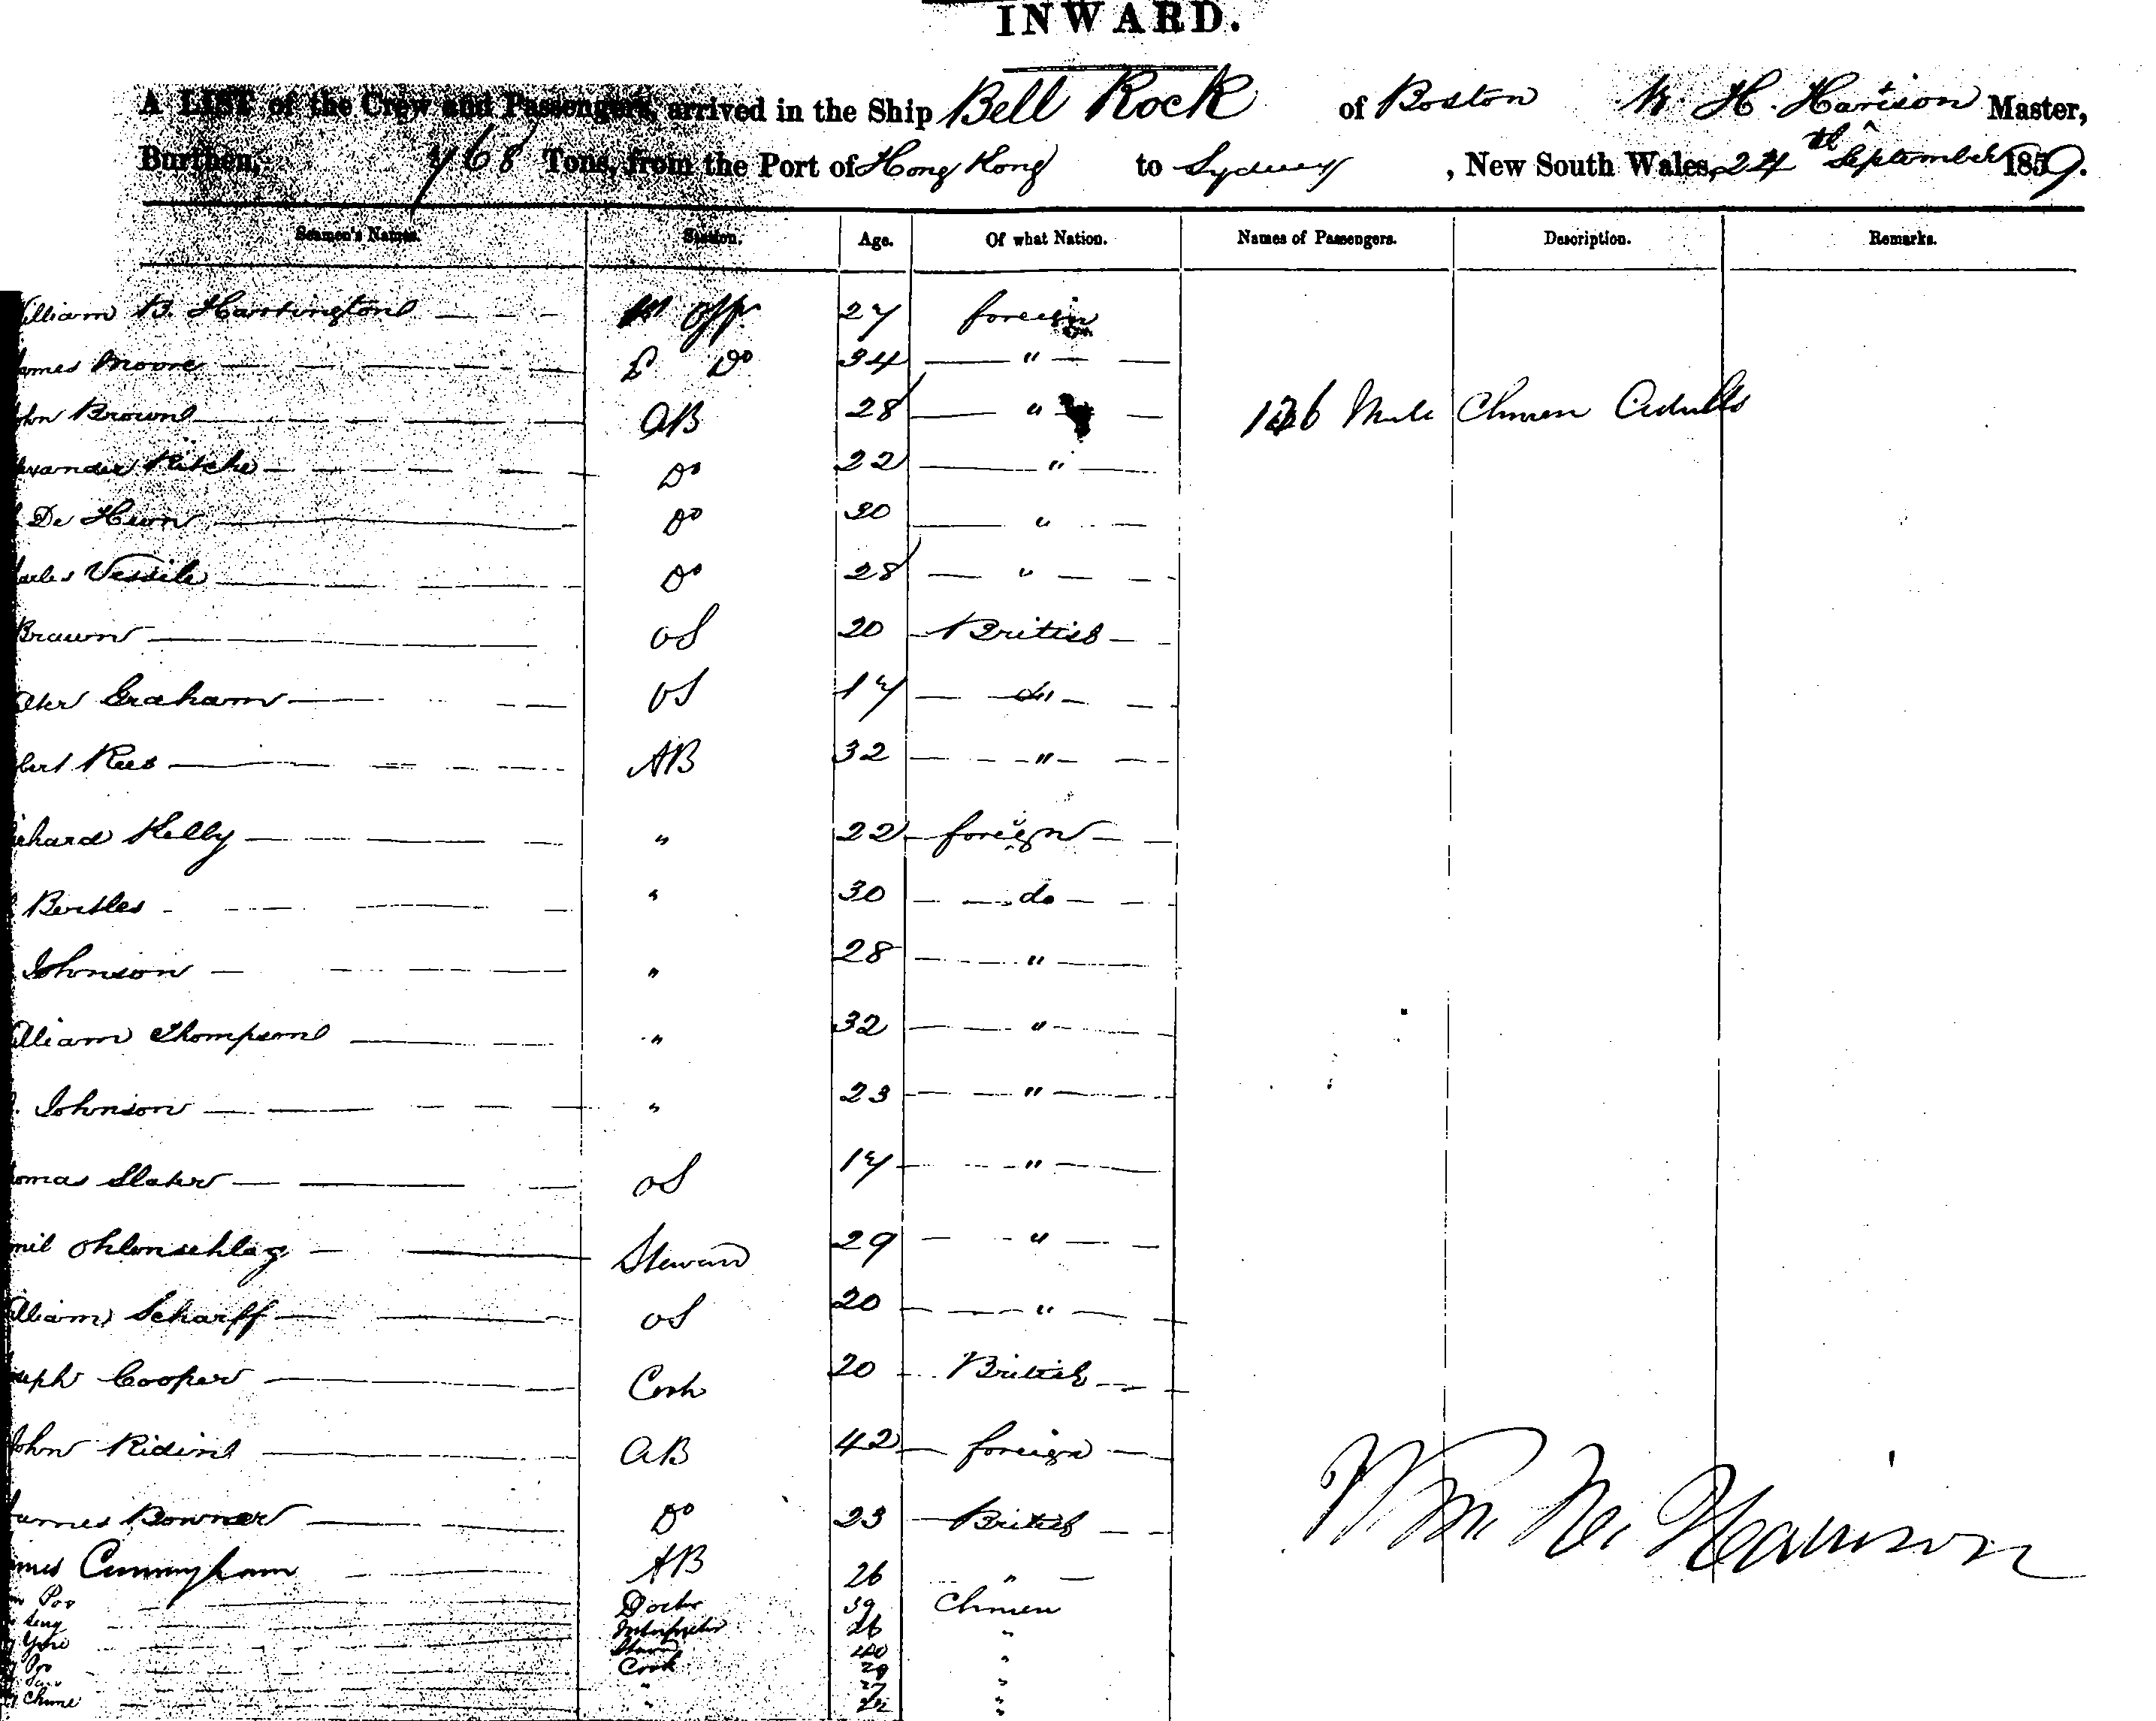 INWARD.
A LIST of the Crew and Passengers, arrived in the Ship Bell Rock of Boston W. H. Harrison Master,
Burthen, 768 Tons, from the Port of Hong Kong to Sydney, New South Wales, 24th September 1859.
Seamen's Names. Station. Age. Of what Nation. Names of Passengers. Description. Remarks.
illiam B. Harrington 1st Offr 27 foreign
ames Moore 2 Do 34 "
ohn Brown AB 28 " Male Chinese Adults
exander Ritchie Do 22 "
De Do "
arles Vessile Do 28 "
Brawn OS 20 British
eter Graham OS 17 do
bert Rees AB 32 "
ichard Kelly " 22 foreign
Bertles " 30 do
Johnson " 28 "
illiam Thompson " 32 "
. Johnson " 23 "
omas Slater OS 17 "
mil Ohlenschlag Steward 29 "
illiam Scharff OS 20 "
oseph Cooper Cook 20 British
John Ridin AB 42 foreign
James Bowner Do 23 British
ames Cunningham AB 26 "
Poo Doctor 39 Chinese
Seng Interpreter 26 "
Steward 40 "
Poo Cook "
" "
" "
Wm H. Harrison